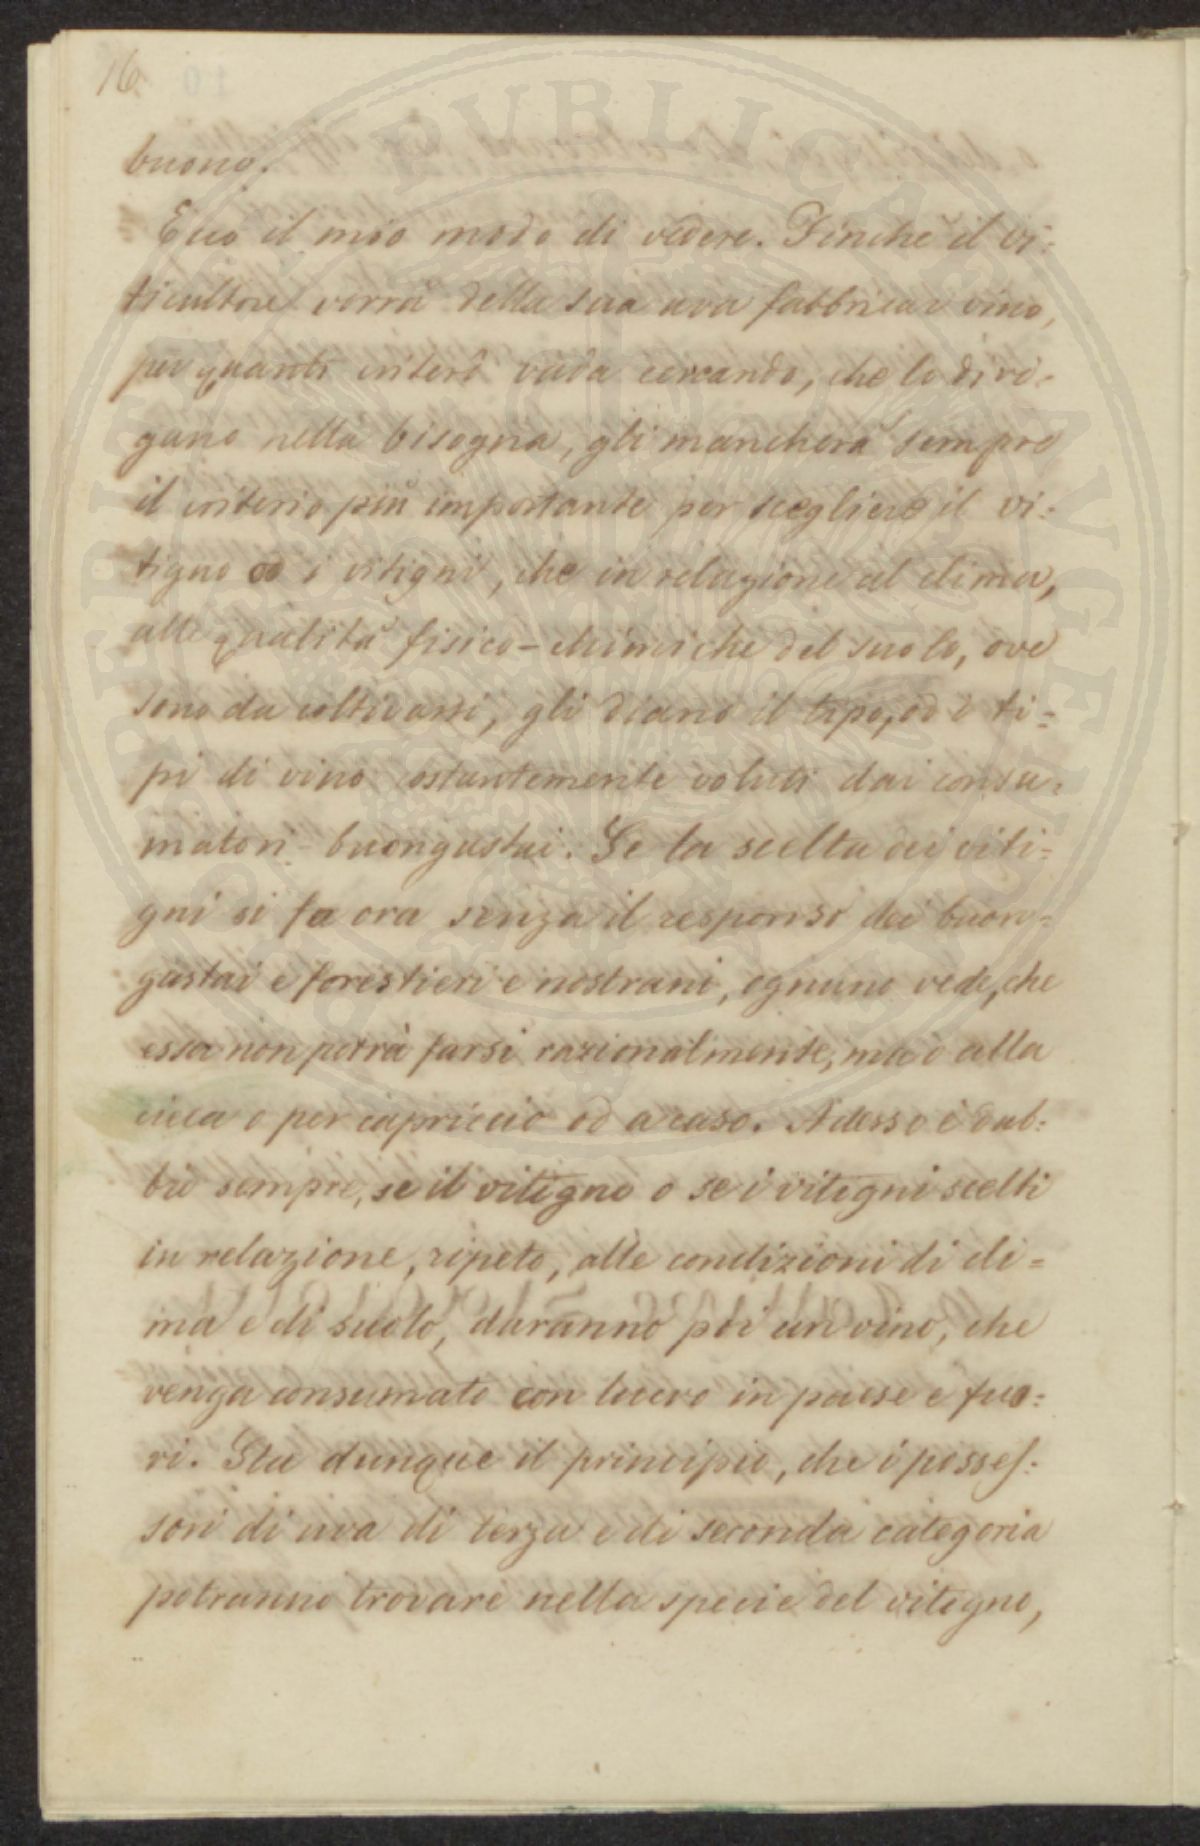 16.
buono.
Ecco il mio modo di vedere. Finchè il vi=
ticultore vorrà della sua uva fabbricar vino,
per quanti criterî vada cercando, che lo diri=
gano nella bisogna, gli mancherà sempre
il criterio più importante per scegliere il vi=
tigno od i vitigni, che in relazione al clima,
alle qualità fisico-chimiche del suolo, ove
sono da coltivarsi, gli diano il tipo, od i ti=
pi di vino costantemente voluti dai consu=
matori-buongustai. Se la scelta dei viti=
gni si fa ora senza il responso dei buon=
gustai e forestieri e nostrani, ognuno vede, che
essa non potrà farsi razionalmente, ma o alla
cieca o per capriccio od a caso. Adesso è dub=
bio sempre, se il vitigno o se i vitigni scelti
in relazione, ripeto, alle condizioni di cli=
ma e di suolo, daranno poi un vino, che
venga consumato con lucro in paese e fuo=
ri. Sta dunque il principio, che i posses=
sori di uva di terza e di seconda categoria
potranno trovare nella specie del vitigno,
PVBLICAE